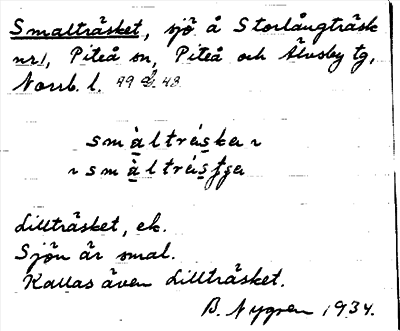 Smalträsket, sjö å Storlångträsk
nr 1, Piteå sn, Piteå och Älvsby tg,
Norrb. l. 49 48
smàltráska
smàltrásʃga
Lillträsket, ek.
Sjön är smal.
Kallas även Lillträsket.
B. Nygren 1934.